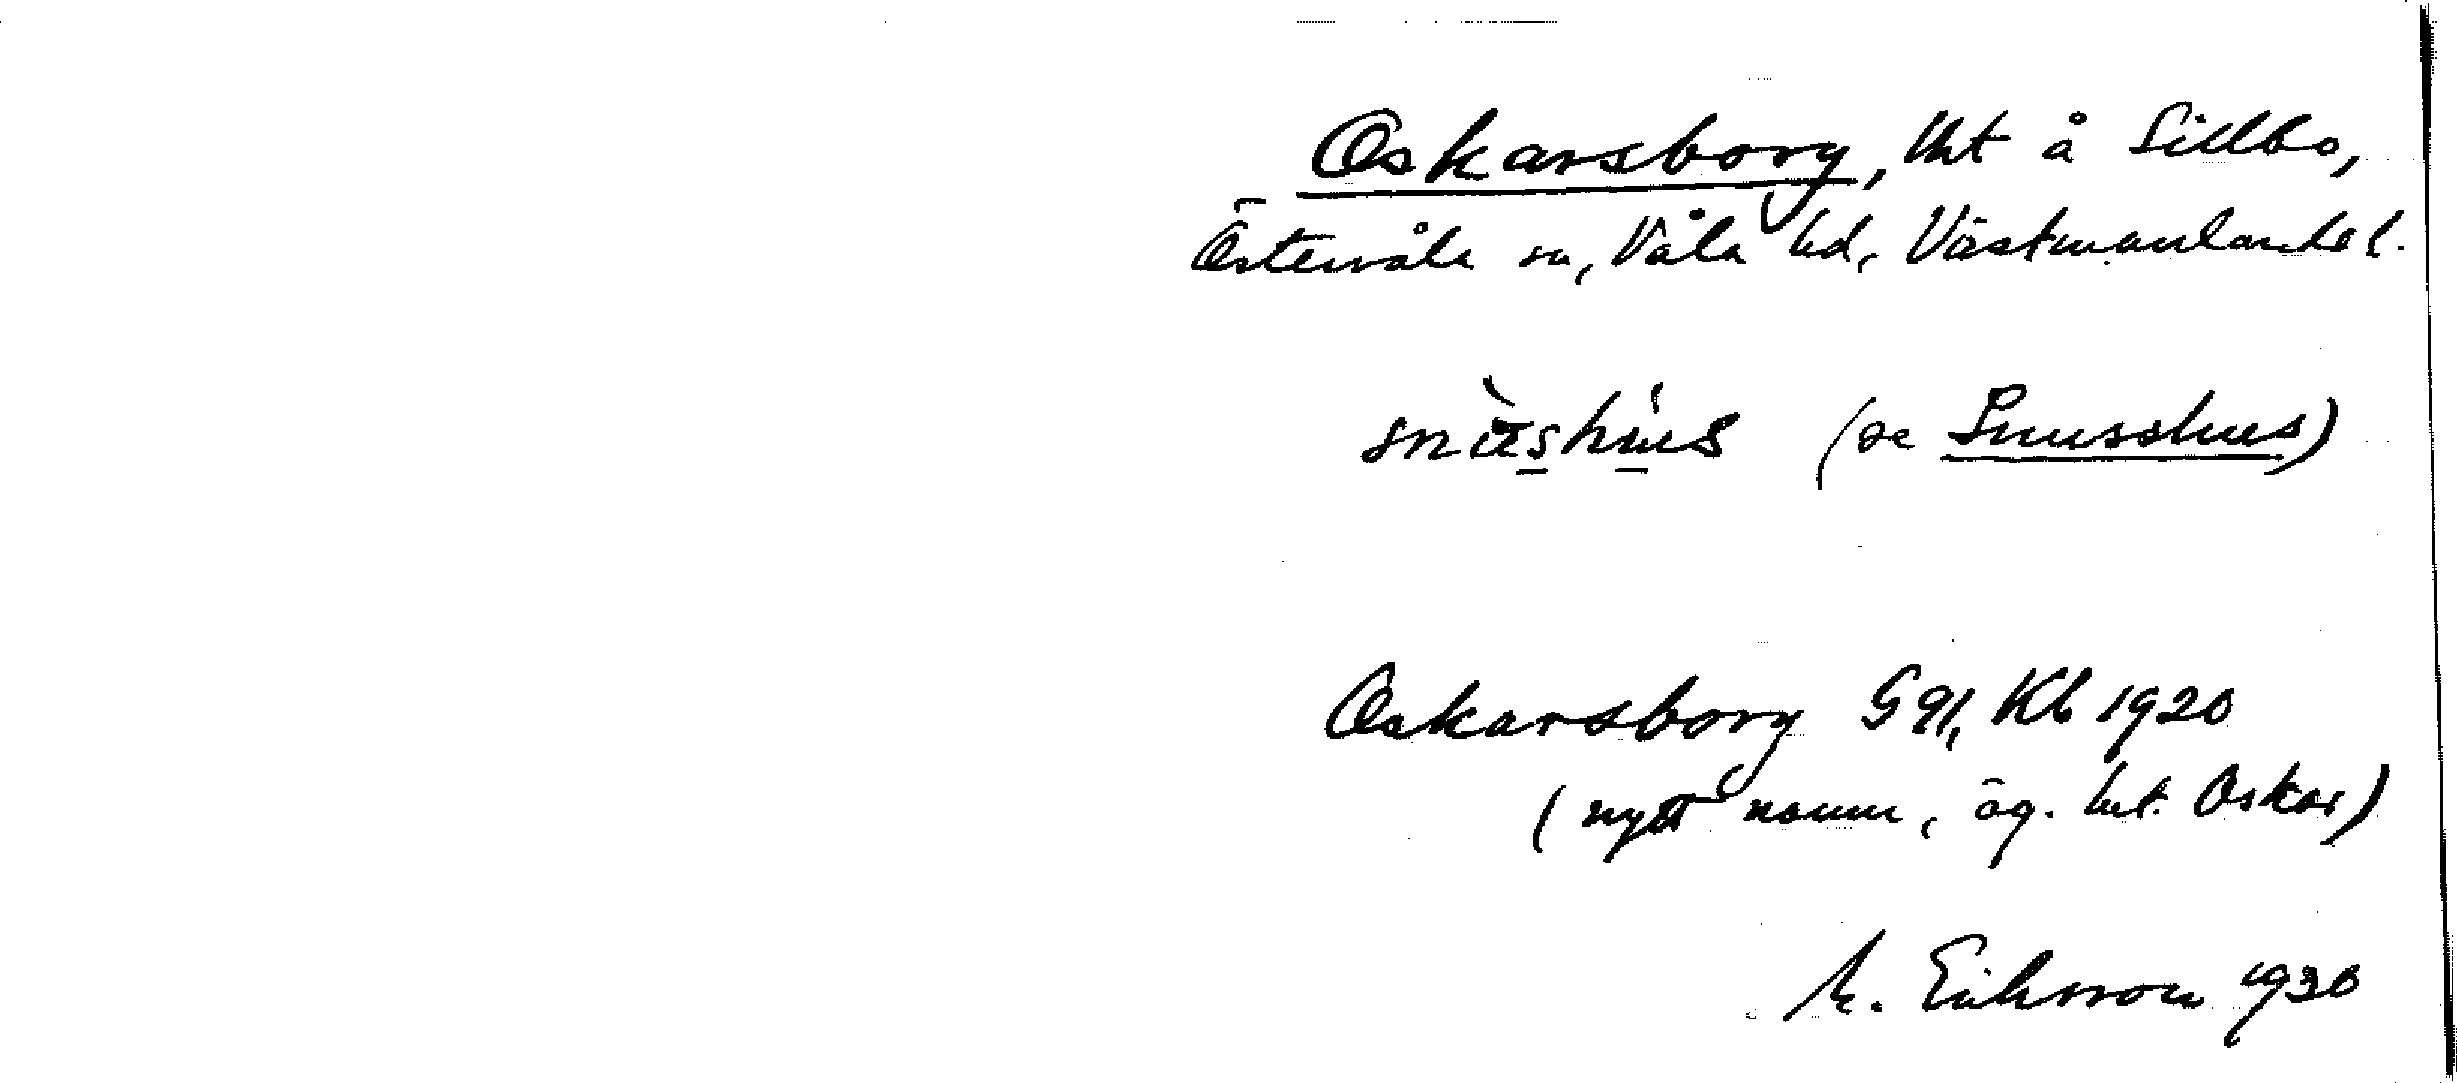 Oskarsborg, lht å Sillbo,
Östervåla sn, Våla hd, Västmanlands l.
(se Snusshus)
Oskarsborg G 91, Kb 1920
(nytt namn, äg. het. Oskar)
M. Eriksson 1930